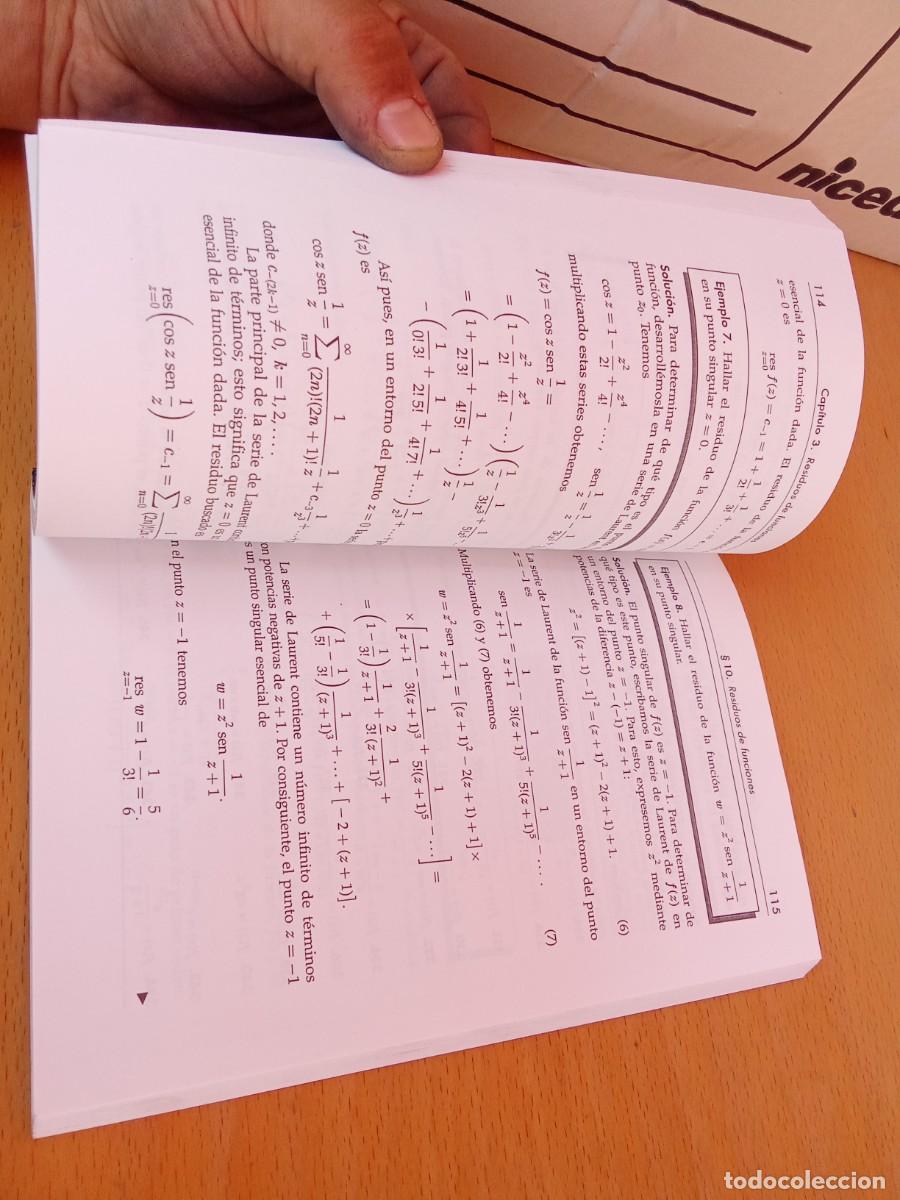 114
Capítulo 3. Residuos de funciones
esencial de la función dada. El residuo de la
z = 0 es
res f(z) = c₋₁ = 1 + 1/2! + 1/3! + ...
z=0
Ejemplo 7. Hallar el residuo de la función
en su punto singular z = 0.
Solución. Para determinar de qué tipo es el
función, desarrollémosla en una serie de Laurent en
punto z₀. Tenemos
cos z = 1 − z²/2! + z⁴/4! − ..., sen 1/z = 1/z −
multiplicando estas series obtenemos
f(z) = cos z sen 1/z =
= (1 − z²/2! + z⁴/4! − ...)(1/z − 1/3!z³ +
= (1 + 1/2!3! + 1/4!5! + ...) 1/z −
− (1/0!3! + 1/2!5! + 1/4!7! + ...) 1/z³ + ...
Así pues, en un entorno del punto z = 0
f(z) es
cos z sen 1/z = ∑ₙ₌₀^∞ 1/(2n)!(2n + 1)! 1/z + c₋₃ 1/z³ + ...
donde c₋₍₂ₖ₋₁₎ ≠ 0, k = 1, 2, ....
La parte principal de la serie de Laurent
infinito de términos; esto significa que z = 0 es
esencial de la función dada. El residuo buscado es
res (cos z sen 1/z) = c₋₁ = ∑ₙ₌₀^∞
z=0
§ 10. Residuos de funciones
115
Ejemplo 8. Hallar el residuo de la función w = z² sen 1/(z + 1)
en su punto singular.
Solución. El punto singular de f(z) es z = −1. Para determinar de
qué tipo es este punto, escribamos la serie de Laurent de f(z) en
un entorno del punto z = −1. Para esto, expresemos z² mediante
potencias de la diferencia z − (−1) = z + 1:
z² = [(z + 1) − 1]² = (z + 1)² − 2(z + 1) + 1. (6)
La serie de Laurent de la función sen 1/(z + 1) en un entorno del punto
z = −1 es
sen 1/(z + 1) = 1/(z + 1) − 1/3!(z + 1)³ + 1/5!(z + 1)⁵ − .... (7)
Multiplicando (6) y (7) obtenemos
w = z² sen 1/(z + 1) = [(z + 1)² − 2(z + 1) + 1] ×
× [1/(z + 1) − 1/3!(z + 1)³ + 1/5!(z + 1)⁵ − ...] =
= (1 − 1/3!) 1/(z + 1) + 2/3! 1/(z + 1)² +
+ (1/5! − 1/3!) 1/(z + 1)³ + ... + [−2 + (z + 1)].
La serie de Laurent contiene un número infinito de términos
on potencias negativas de z + 1. Por consiguiente, el punto z = −1
s un punto singular esencial de
w = z² sen 1/(z + 1).
n el punto z = −1 tenemos
res w = 1 − 1/3! = 5/6.
z=−1
todocoleccion